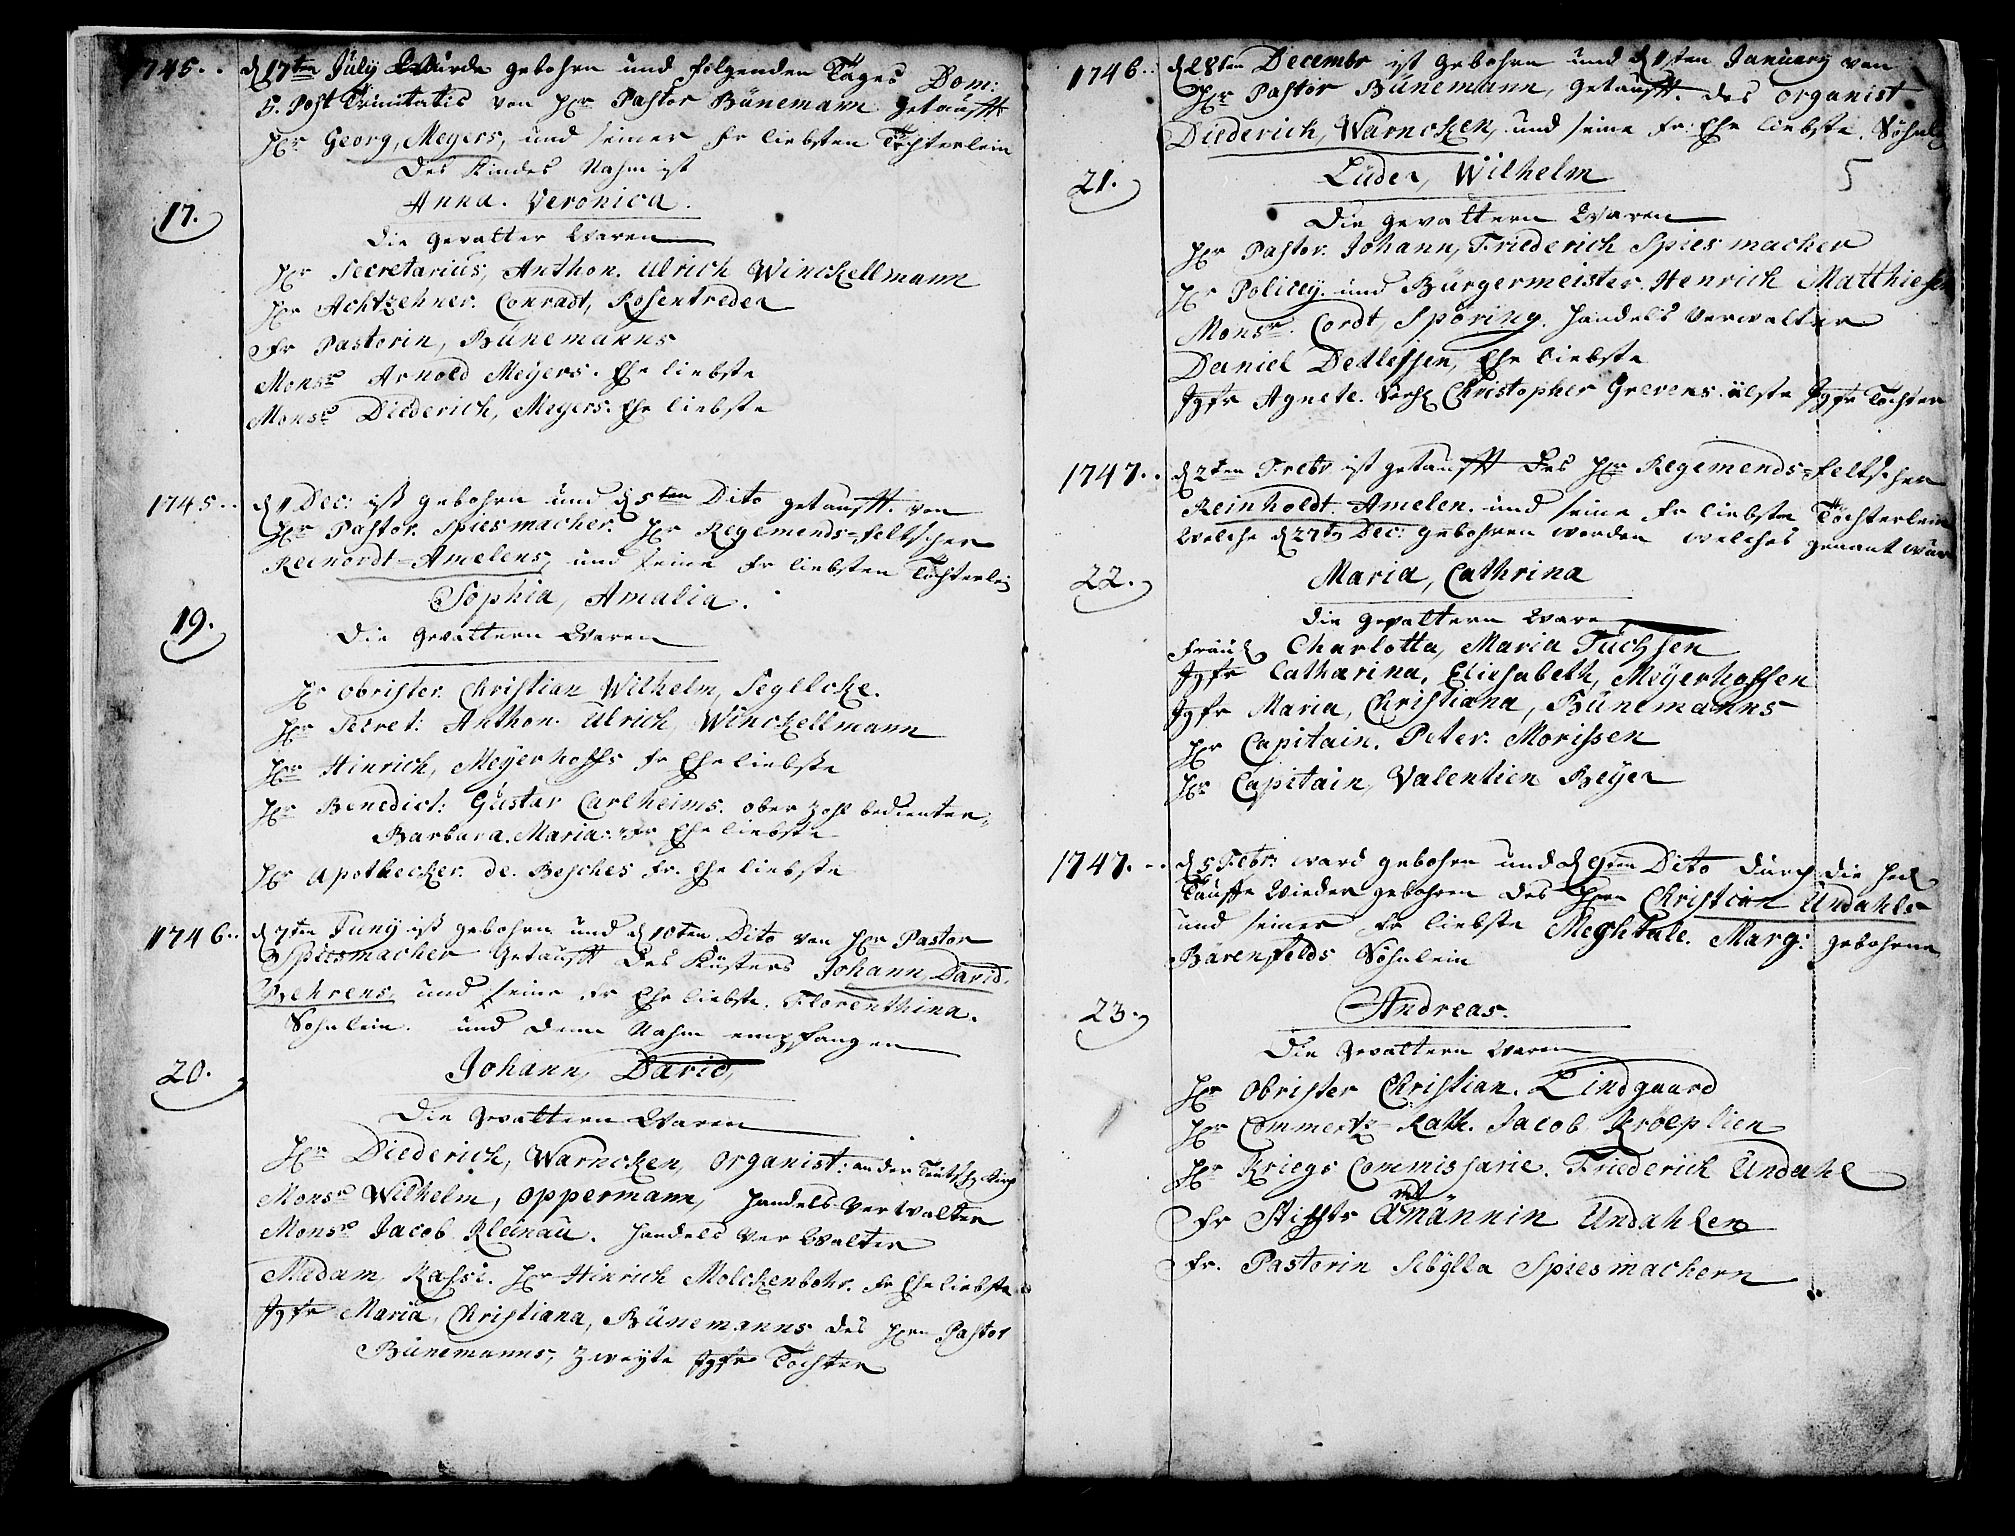 1745.. d 17ten July Wurde gebohrn und folgenden Tages Dom:
5. Post Trinitatis von Hr Pastor Bünemann getaufft
Hr Georg, Meyers, und seiner Fr liebsten Töchterlein
Des Kindes Nahm ist
17. Anna. Veronica.
Die Gevatter Waren
Hr Secretarius, Anthon. Ulrich Winckellmann
Hr Achtzehner. Conradt, Rosentreder
Fr Pastorin, Bünemanns
Monsr Arnold Meyers. Ehe liebste
Monsr Diederich, Meyers. Ehe liebste
1745.. d 1 Dec: ist gebohrn und d 5ten Dito getaufft. von
Hr Pastor. Spiesmacher. Hr Regemends=feltscher
Reinordt=Amelens, und seine Fr liebsten Töchterlein
19. Sophia, Amalia.
Die Gevattern Waren
Hr Obrister. Christian Wilhelm, Segllcke.
Hr Secret: Anthon. Ulrich, Winckellmann
Hr Hinrich, Meyerhoffs Fr Ehe liebste
Hr Benedict: Gustav Carlheims. ober Zohl bedienter=
Barbara. Maria. Fr Ehe liebste
Hr Apothecker. de. Besches Fr. Ehe liebste
1746.. d 7ten Juny ist gebohrn und d 10ten Dito von Hr Pastor
Spiesmacher Getaufft Des Küsters Johann, David.
Behrens, und seine Fr Ehe liebste. Florenthina.
Sohnlein. und denn Nahm empfangen
20. Johann, David,
Die Gevattern Waren
Hr Diederich, Warncken, Organist. an der Teutsch Kirch
Monsr Wilhelm, Oppermann, Handels Verwalter
Monsr Jacob Kleinau. Handels Verwalter
Madam, Kassé. Hr Hinrich Molckenbohr. Fr Ehe liebste
Jgfr Maria, Christiana, Bünemanns des Hrn Pastor
Bünemanns, zweyte Jgfr Tochter
1746.. d 28ten Decembr ist gebohrn und d 1sten January von
Hr Pastor Bünemann, getaufft. des Organist
Diederich, Warncken, und seine Fr. Ehe liebste. Söhnl
5
21. Lüder, Wilhelm
Die Gevattern Waren
Hr Pastor. Johann, Friederich Spiesmacher
Hr Policey. und Bürgermeister. Henrich Matthiesen
Monsr. Cordt, Spöring. Handels Verwalter
Daniel Detlefsen, Ehe liebste
Jgfr Agnete. Christopher Grevens. älste Jgfr Tochter
1747.. d 2ten Febr ist getaufft Des Hr Regemends=feltscher
Reinholdt. Amelen. und seine Fr liebste Töchterlein
Welche d 27t Dec: gebohren worden welches genant war
22. Maria, Cathrina
Die Gevattern Ware
Fräul Charlotta, Maria Fuchsen
Jgfr Catharina, Eliesabeth, Meyerhoffen
Jgfr Maria, Christiana, Bünemanns
Hr Capitain. Peter. Morissen
Hr Capitain, Valentien Beyer
1747... d 5 Febr: ward gebohrn und d 9ten Dito durch die heil
Tauffe Wieder gebohren des Hrn Christian Undahls
und seiner Fr liebste Meghtale. Marg: gebohrne
Bärenfelds Söhnlein
23. Andreas.
Die Gevattern Waren
Hr Obrister Christian. Lindgaard
Hr Commertz=Rath. Jacob Kroeplien
Hr Kriegs Commissarie. Friederich Undahl
Fr Stiffts Amtmännin Undahlen
Fr. Pastorin Sebylla Spiesmachern